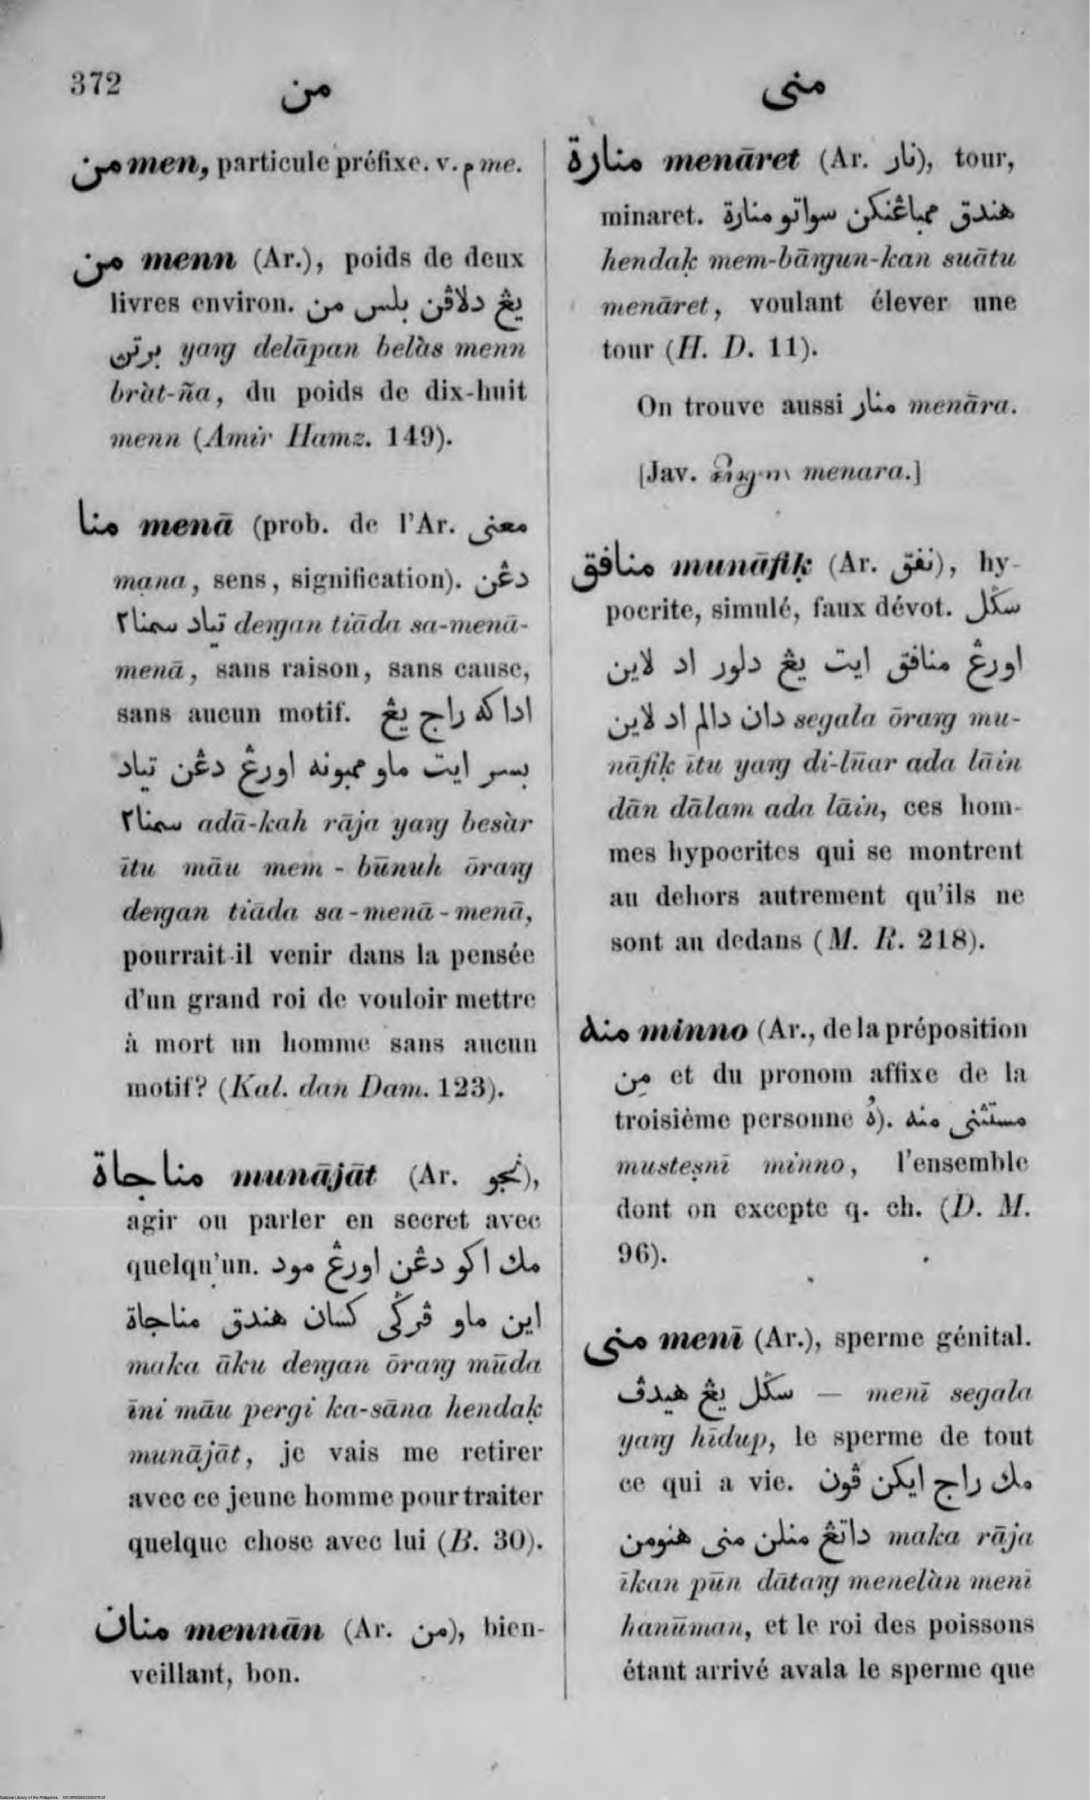 372
من
منى
من men, particule préfixe. v. م me.
من menn (Ar.), poids de deux
livres environ. يڠ دلاڤن بلس من
برتن yang delāpan belàs menn
bràt-ña, du poids de dix-huit
menn (Amir Hamz. 149).
منا menā (prob. de l'Ar. معنى
mạna, sens, signification). دڠن
تياد سمنا٢ dengan tiāda sa-menā-
menā, sans raison, sans cause,
sans aucun motif. اداكه راج يڠ
بسر ايت ماو ممبونه اورڠ دڠن تياد
سمنا٢ adā-kah rāja yang besàr
ītu māu mem-būnuh ōrang
dengan tiāda sa-menā-menā,
pourrait-il venir dans la pensée
d'un grand roi de vouloir mettre
à mort un homme sans aucun
motif? (Kal. dan Dam. 123).
مناجاة munājāt (Ar. نجو),
agir ou parler en secret avec
quelqu'un. مك اكو دڠن اورڠ مود
اين ماو ڤرڬى كسان هندق مناجاة
maka āku dengan ōrang mūda
īni māu pergi ka-sāna hendaḳ
munājāt, je vais me retirer
avec ce jeune homme pour traiter
quelque chose avec lui (B. 30).
منان mennān (Ar. من), bien-
veillant, bon.
منارة menāret (Ar. نار), tour,
minaret. هندق ممباڠنكن سواتو منارة
hendaḳ mem-bāngun-kan suātu
menāret, voulant élever une
tour (H. D. 11).
On trouve aussi منار menāra.
[Jav. menara.]
منافق munāfiḳ (Ar. نفق), hy-
pocrite, simulé, faux dévot. سڬل
اورڠ منافق ايت يڠ دلور اد لاين
دان دالم اد لاين segala ōrang mu-
nāfiḳ ītu yang di-lūar ada lāin
dān dālam ada lāin, ces hom-
mes hypocrites qui se montrent
au dehors autrement qu'ils ne
sont au dedans (M. R. 218).
منه minno (Ar., de la préposition
مِن et du pronom affixe de la
troisième personne هُ). مستثنى منه
musteṣnī minno, l'ensemble
dont on excepte q. ch. (D. M.
96).
منى menī (Ar.), sperme génital.
— سڬل يڠ هيدڤ menī segala
yang hīdup, le sperme de tout
ce qui a vie. مك راج ايكن ڤون
داتڠ منلن منى هنومن maka rāja
īkan pūn dātang menelàn menī
hanūman, et le roi des poissons
étant arrivé avala le sperme que